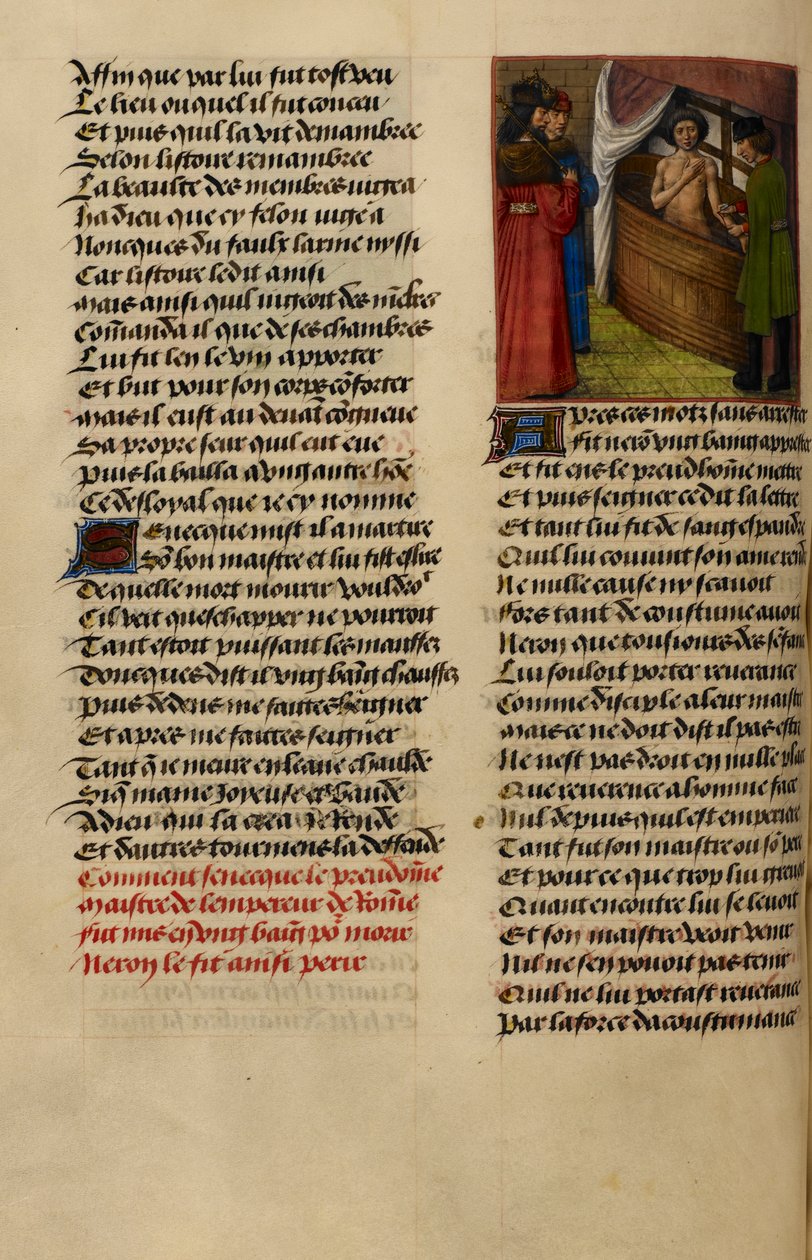 Affin que par lui fut tost veu
Le lieu ouquel il fut conceu
Et puis quil la vit demambree
Selon listoire remambree
La beaulte des membres iugea
Ha dieu que cy felon iuge a
Noncques du faulx larme nyssi
Car listoire ledit ainsi
Mais ainsi quil iugeoit des mēbres
Cōmanda il que de ses chambres
Lui fit len le vin apporter
Et but pour son corps cōforter
Mais il eust au deuāt cōgneue
Sa propre seur quil eut eue
Puis la bailla a vng autre hōe
Ce desloyal que ie cy nomme
Senecque mist il a martire
Sō bon maistre et lui fist eslire
De quelle mort mourir vouldroit
Cil veit queschapper ne pourroit
Tant estoit puissant les mauffez
Doncques dist il vng baing chauffez
Puis dedens me faites beigner
Et apres me faittes seigner
Tant q̄ ie meure en leaue chaulde
Siq̄ mame Joyeuse et baude
A dieu qui la crea ie Rende
Et dautres tourmens la deffende
Comment senecque le preudōme
Maistre de lempereur de Rōme
fut mis en vng baing pō morir
Neron le fit ainsi perir
Apres ces motz sans arrester
fit nerō vng baing apprester
Et fit ens le preudhōme mettre
Et puis seigner ce dit la lettre
Et tant lui fit de sang espandre
Quil lui couuint son ame rendre
Ne nulle cause ny scauoit
Fors tant de coustume auoit
Neron que tousiours des sē fance
Lui souloit porter reuerance
Comme disciple a leur maistre
Mais ce ne doit dist il pas estre
Ne nest pas droit en nulle place
Que reuerence a homme face
Nul depuis quil est emperiere
Tant fut son maistre ou sō pere
Et pour ce que trop lui greuoit
Quant encontre lui se leuoit
Et son maistre veoit venir
Nil ne sen pouoit pas tenir
Quil ne lui portast reuerance
Par la force dacoustumance